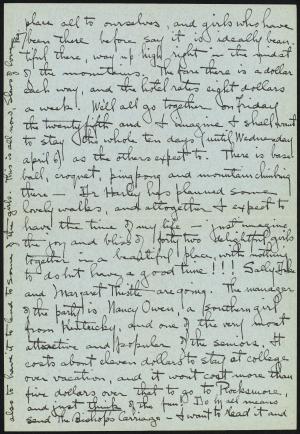 place all to ourselves, and girls who have
been there before say it is ideally beau-
tiful there, way up high right in the midst
of the mountains. The fare there is a dollar
each way, and the hotel rates eight dollars
a week. Will all go together on Friday
the twenty fifth and I imagine I shall want
to stay the whole ten days, until Wednesday
April 6th as the others expect to. There is base
ball, croquet, ping pong and mountain climbing
there — Dr Harley has planned some
lovely walks, and altogether I expect to
have the time of my life — just imagine
the joy and bliss of forty two delightful girls
together in a beautiful place, with nothing
to do but having a good time!!! Sally
and Margaret Thistle are going. The manager
of the party is Nancy Owen, a southern girl
from Kentucky, and one of the very most
attractive and popular of the seniors. It
costs about eleven dollars to stay at college
over vacation, and it wont cost more than
five dollars over that to go to
and just think of the fun! Do by all means
send The Bishop's Carriage — I want to read it and
also to read it to some of the girls. This is all now.